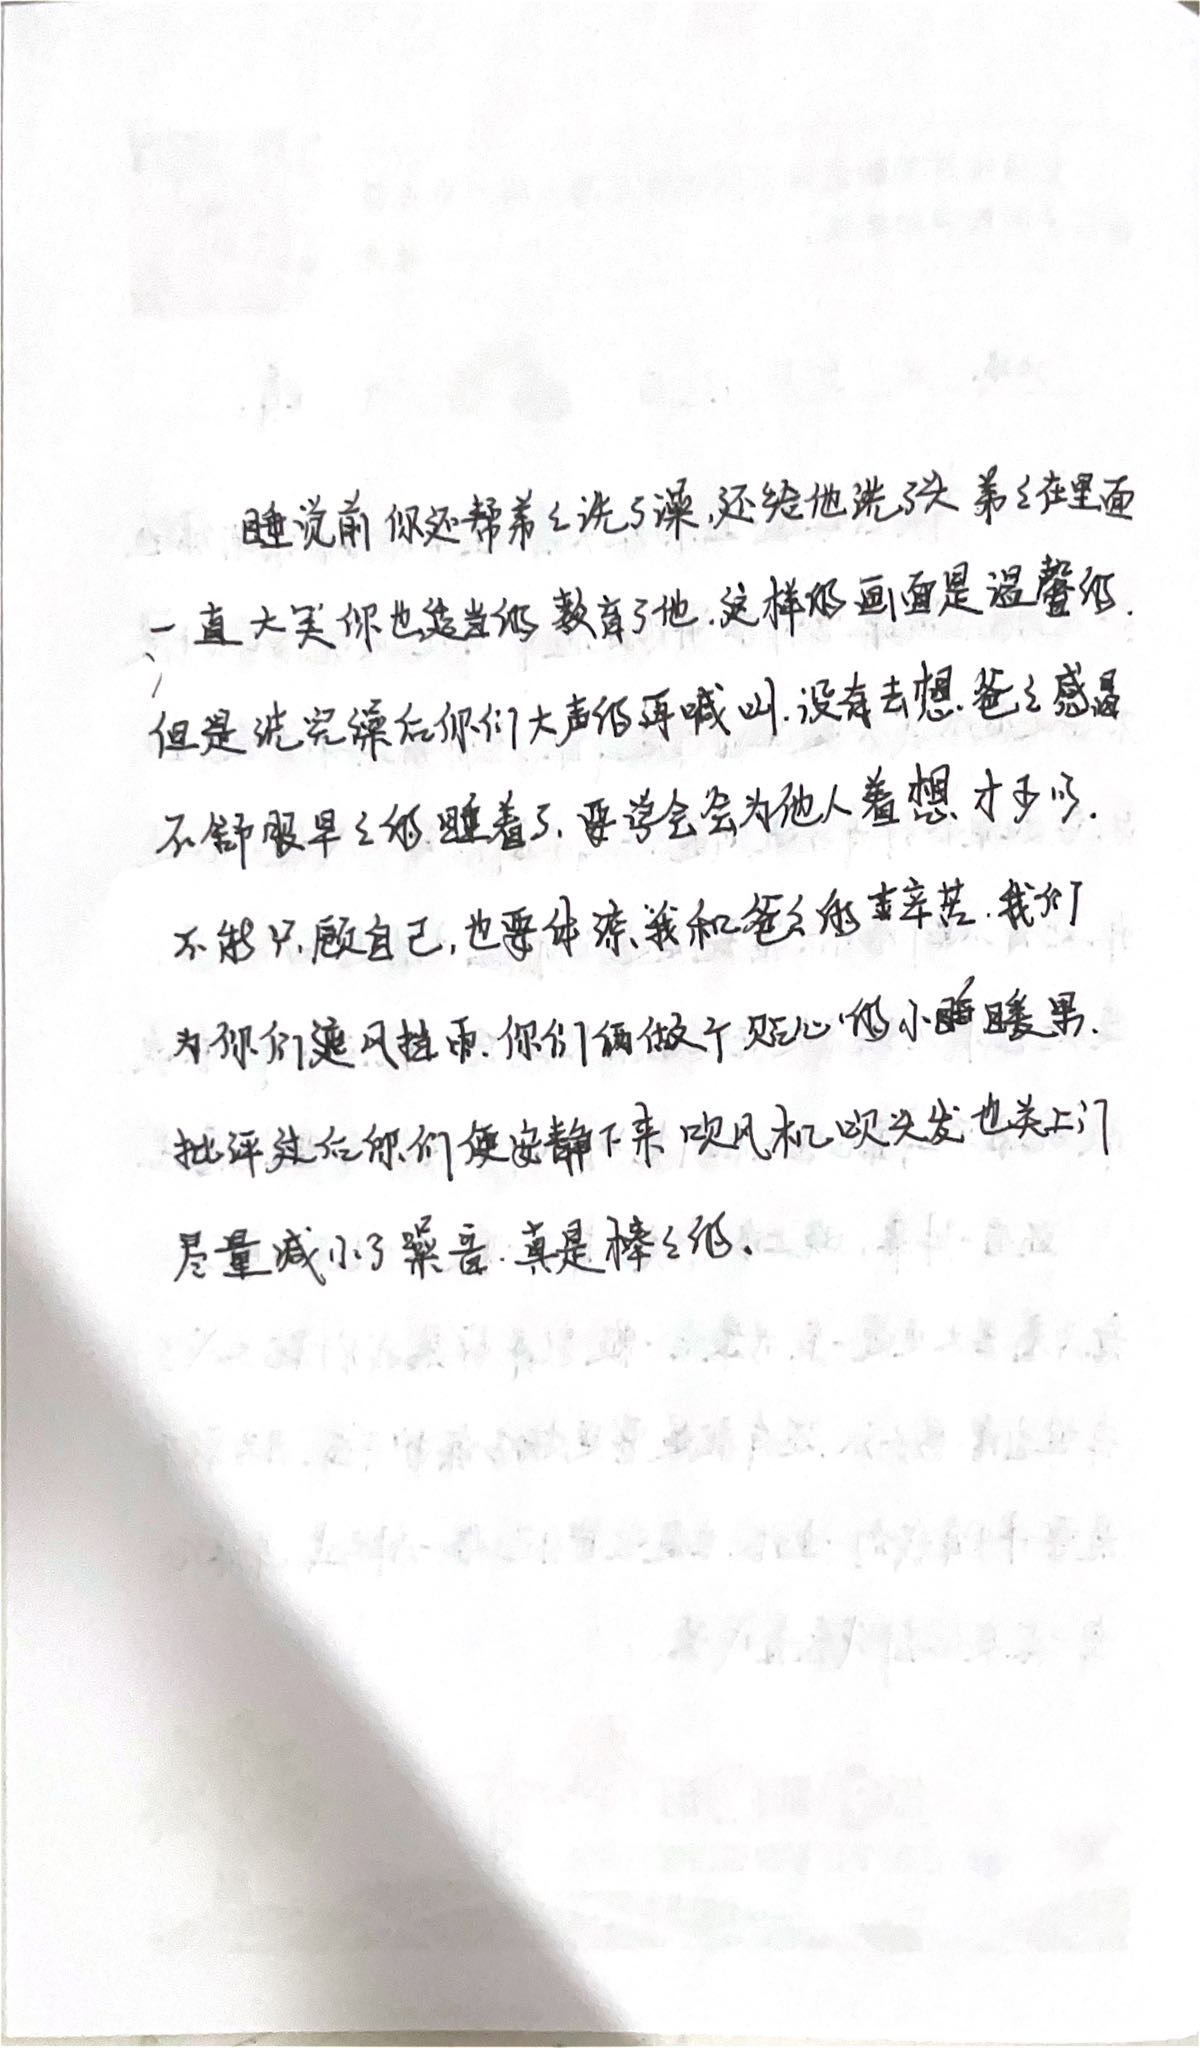 睡觉前你还帮弟弟洗了澡,还给他洗了头 弟弟在里面
一直大笑你也适当的教育了他.这样的画面是温馨的.
但是洗完澡后你们大声的再喊叫.没有去想爸爸感冒
不舒服早早的睡着了.要学会会为他人着想才可以.
不能只顾自己,也要体谅我和爸爸的辛苦.我们
为你们遮风挡雨.你们俩做个贴心的小暖果.
批评过后你们便安静下来 吹风机吹头发也关上门
尽量减小了噪音.真是棒棒的。